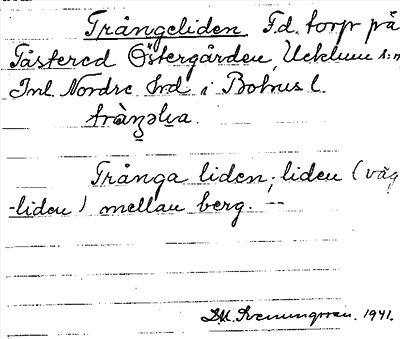 Trångeliden Fd. torp på
Tåstered Östergården, Ucklum s:n
Inl. Nordre hd i Bohus l.
tràŋəlıa.
Trånga liden, liden (väg
-liden) mellan berg. —
Svenungsson. 1941.